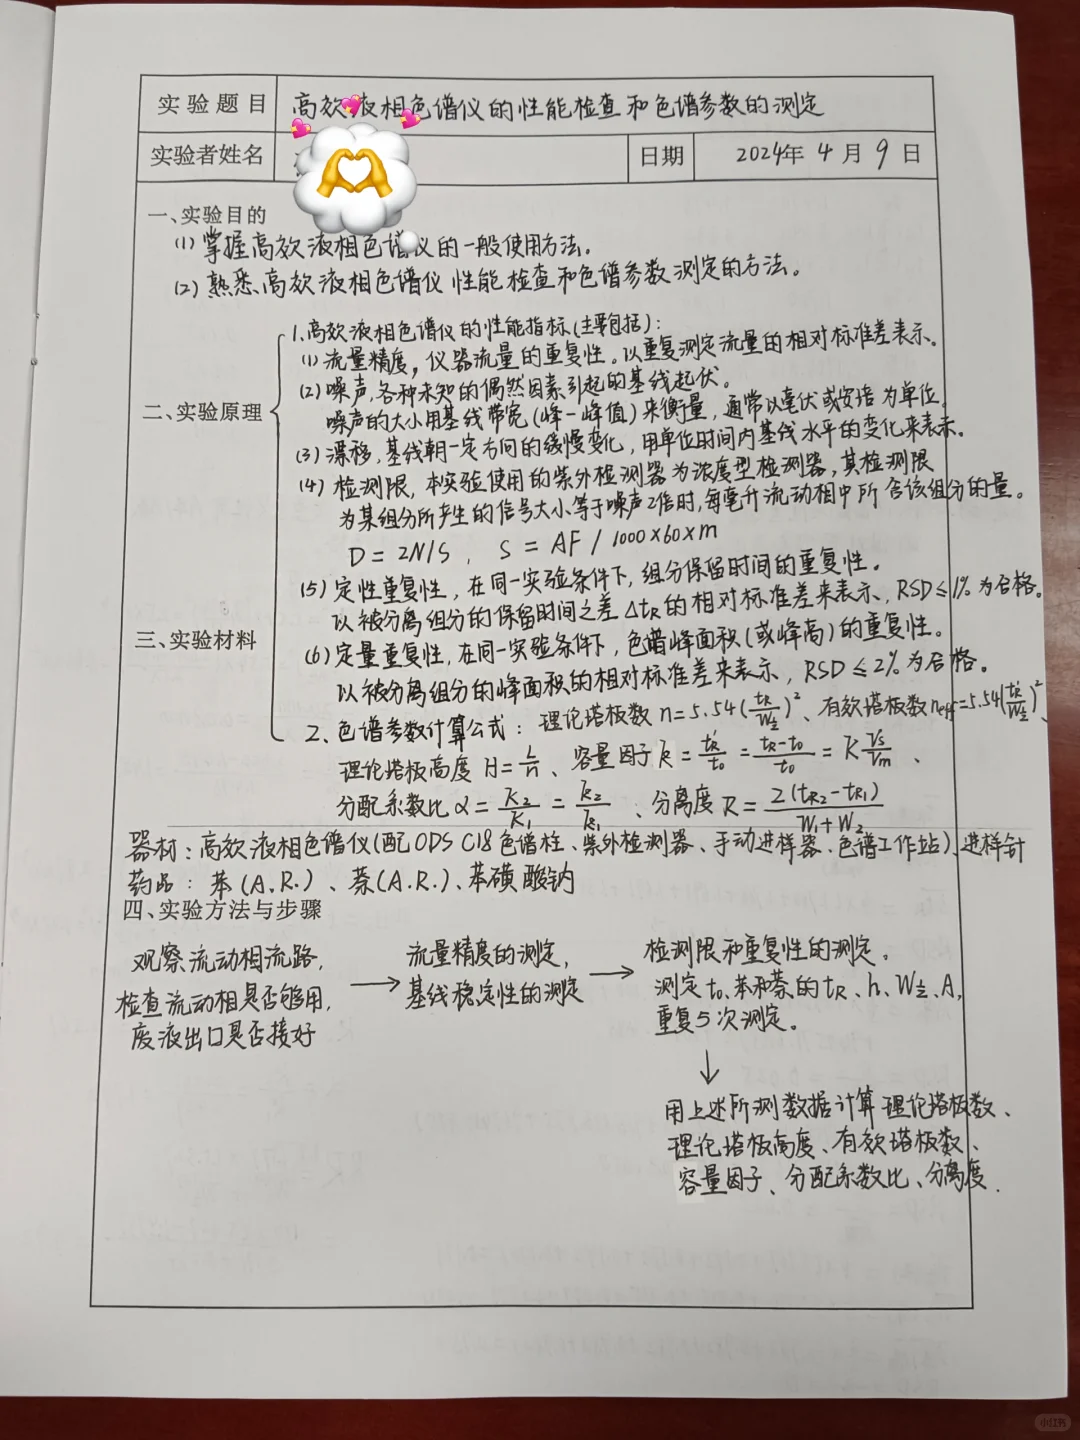 实验题目 高效液相色谱仪的性能检查和色谱参数的测定
实验者姓名 日期 2024年4月9日
一、实验目的
(1) 掌握高效液相色谱仪的一般使用方法。
(2) 熟悉高效液相色谱仪性能检查和色谱参数测定的方法。
二、实验原理
1.高效液相色谱仪的性能指标(主要包括):
(1) 流量精度,仪器流量的重复性。以重复测定流量的相对标准差表示。
(2) 噪声,各种未知的偶然因素引起的基线起伏。
噪声的大小用基线带宽(峰-峰值)来衡量,通常以毫伏或安培为单位。
(3) 漂移,基线朝一定方向的缓慢变化,用单位时间内基线水平的变化来表示。
(4) 检测限,本实验使用的紫外检测器为浓度型检测器,其检测限
为某组分所产生的信号大小等于噪声2倍时,每毫升流动相中所含该组分的量。
D = 2N/S, S = AF / 1000×60×m
(5) 定性重复性,在同一实验条件下,组分保留时间的重复性。
以被分离组分的保留时间之差 ΔtR 的相对标准差来表示,RSD≤1%为合格。
(6) 定量重复性,在同一实验条件下,色谱峰面积(或峰高)的重复性。
以被分离组分的峰面积的相对标准差来表示,RSD≤2%为合格。
2、色谱参数计算公式:理论塔板数 n=5.54(tR/W½)²、有效塔板数neff=5.54(t'R/W½)²、
理论塔板高度 H=L/n、容量因子 k=t'R/t0=tR-t0/t0=KVs/Vm、
分配系数比 α=K2/K1=k2/k1、分离度 R=2(tR2-tR1)/W1+W2
三、实验材料
器材:高效液相色谱仪(配ODS C18色谱柱、紫外检测器、手动进样器、色谱工作站)、进样针
药品:苯(A.R.)、萘(A.R.)、苯磺酸钠
四、实验方法与步骤
观察流动相流路,
检查流动相是否够用,
废液出口是否接好
→ 流量精度的测定,
基线稳定性的测定
→ 检测限和重复性的测定。
测定t0、苯和萘的tR、h、W½、A,
重复5次测定。
↓
用上述所测数据计算理论塔板数、
理论塔板高度、有效塔板数、
容量因子、分配系数比、分离度.
小红书